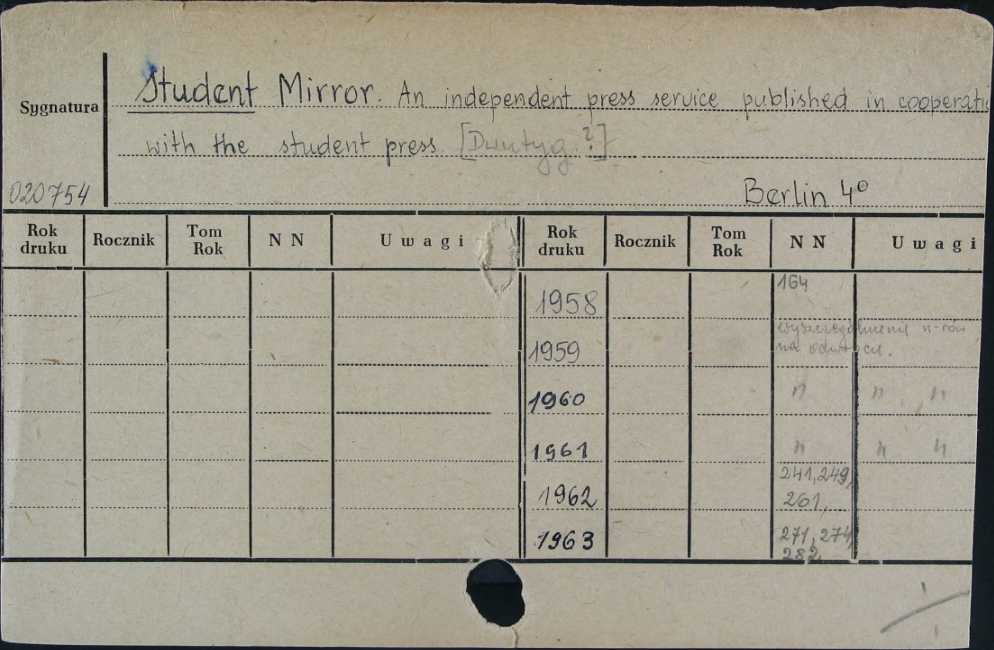 Sygnatura
Student Mirror. An independent press service published in cooperati
with the student press. [Dwutyg. ?]
020754
Berlin 4º
Rok druku Rocznik Tom Rok N N Uwagi Rok druku Rocznik Tom Rok N N Uwagi
1958 164
1959 wyszczególnienie n-rów
na odwrocie.
1960 " " "
1961 " " "
1962 241, 249,
261,
1963 271, 274,
282